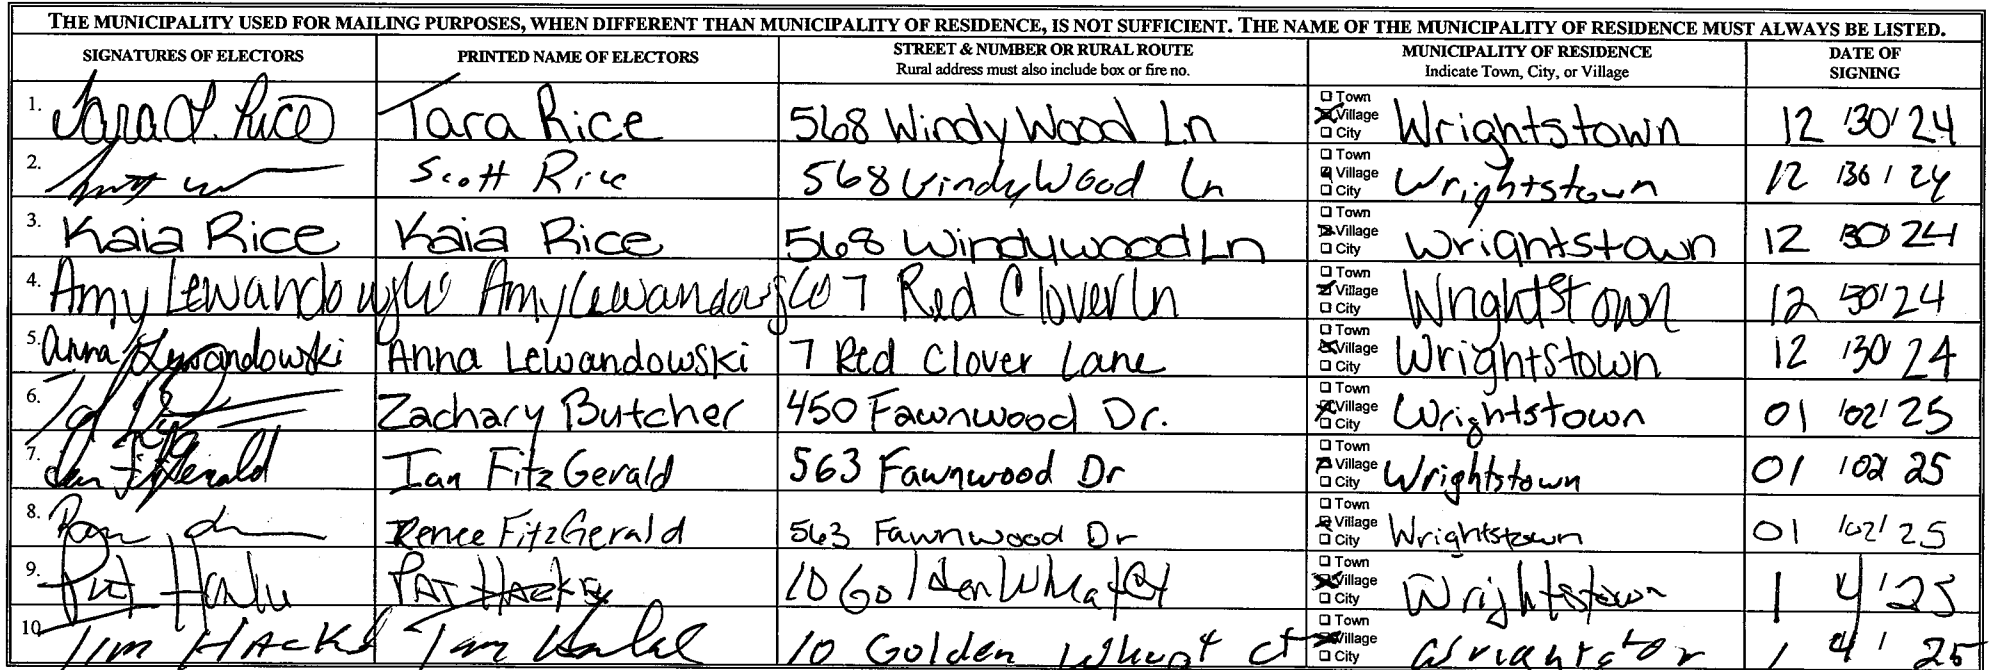 THE MUNICIPALITY USED FOR MAILING PURPOSES, WHEN DIFFERENT THAN MUNICIPALITY OF RESIDENCE, IS NOT SUFFICIENT. THE NAME OF THE MUNICIPALITY OF RESIDENCE MUST ALWAYS BE LISTED.
SIGNATURES OF ELECTORS PRINTED NAME OF ELECTORS STREET & NUMBER OR RURAL ROUTE Rural address must also include box or fire no. MUNICIPALITY OF RESIDENCE Indicate Town, City, or Village DATE OF SIGNING
1. Tara L. Rice Tara Rice 568 Windy Wood Ln Town Village City Wrightstown 12 /30/ 24
2. Scott Rice 568 Windy Wood Ln Town Village City Wrightstown 12 /30/ 24
3. Kaia Rice Kaia Rice 568 Windywood Ln Town Village City Wrightstown 12 30 24
4. Amy Lewandowski Amy Lewandowski 7 Red Clover Ln Town Village City Wrightstown 12 30/ 24
5. Anna Lewandowski Anna Lewandowski 7 Red Clover Lane Town Village City Wrightstown 12 /30/ 24
6. Zachary Butcher 450 Fawnwood Dr. Town Village City Wrightstown 01 /02/ 25
7. Ian FitzGerald Ian FitzGerald 563 Fawnwood Dr Town Village City Wrightstown 01 /02/ 25
8. Renee FitzGerald 563 Fawnwood Dr Town Village City Wrightstown 01 /02/ 25
9. Pat PAT 10 Golden Wheat Ct Town Village City Wrightstown 1 4 / 25
10. Tim Tim 10 Golden Wheat ct Town Village City 1 4 / 25